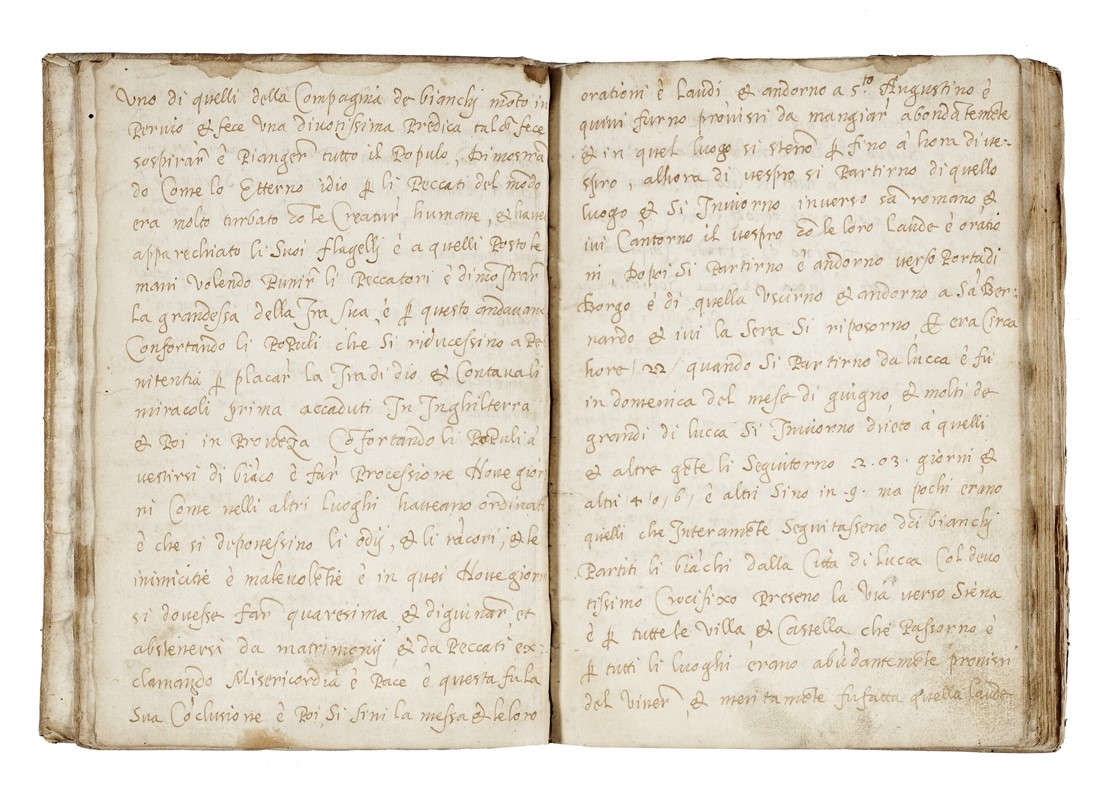 Uno di quelli della Compagnia de bianchj mõto in
Pervio & fece una divotissima Predica talẽ fece
sospirar̃ è Pianger̃ tutto il Populo, Dimostrã
do Come lo Etterno idio ꝑ li Peccati del mõdo
era molto turbato cõ le Creatur̃ humane, & havea
apparechiato li Suoi flagellj è a quelli Posto le
mani volendo Punir̃ li Peccatori è dimostrar̃
la grandessa della Ira sua, è ꝑ questo andavano
Confortando li PoPuli che Si riducessino a Pe
nitentia ꝑ placar̃ la Ira di dio & Contavali
miracoli prima accaduti In Inghilterra
& Poi in Provẽza Cõfortando li PoPuli à
vestirsi di biãco è far̃ Processione Nove gior
ni Come nelli altri Luoghi haveano ordinati
è che si deponessino li odij, & li rãcori, & le
inimicitie è malevolẽtie è in quei Nove giorni
si dovesse far̃ quaresima, & digiunar̃, et
abstenersi da matrimonij, & da Peccati ex:
clamando Misericordia è Pace è questa fu la
Sua Cõclusione è Poi Si finì la messa & le loro
orationi è Laudi & andorno a S.to Augustino è
quivi furno provisti da mangiar̃ abondãtemẽte
& in quel luogo si stenõ ꝑ fino à hora di ve-
spro, alhora di vespro si Partirno di quello
luogo & Si Inviorno inverso sã romano, &
ivi Cantorno il vespro cõ le loro Laude è oratio
ni, Dopoi Si Partirno è andorno verso Porta di
Borgo è di quella Uscirno & andorno a Sã Ber:
nardo & ivi la Sera Si riposorno & era Circa
hore / 22 / quando Si Partirno da lucca è fu
in domenica del mese di giugno, & molti de
grandi di lucca Si Inviorno drieto à quelli
& altre gẽte li Seguitorno .2.o3. giorni &
altri /4/o/6/ è altri Sino in .9. ma pochi erano
quelli che Interamẽte Seguitasseno dei bianchj
Partiti li biãchi dalla Città di Lucca Col devo
tissimo Crocifixo Preseno la Via verso Siena
è ꝑ tutte le Villa, & Castella che Passorno è
ꝑ tutti li luoghi erano abũdantemẽte provisti
del viver̃, & meritamẽte fu fatta quella laude